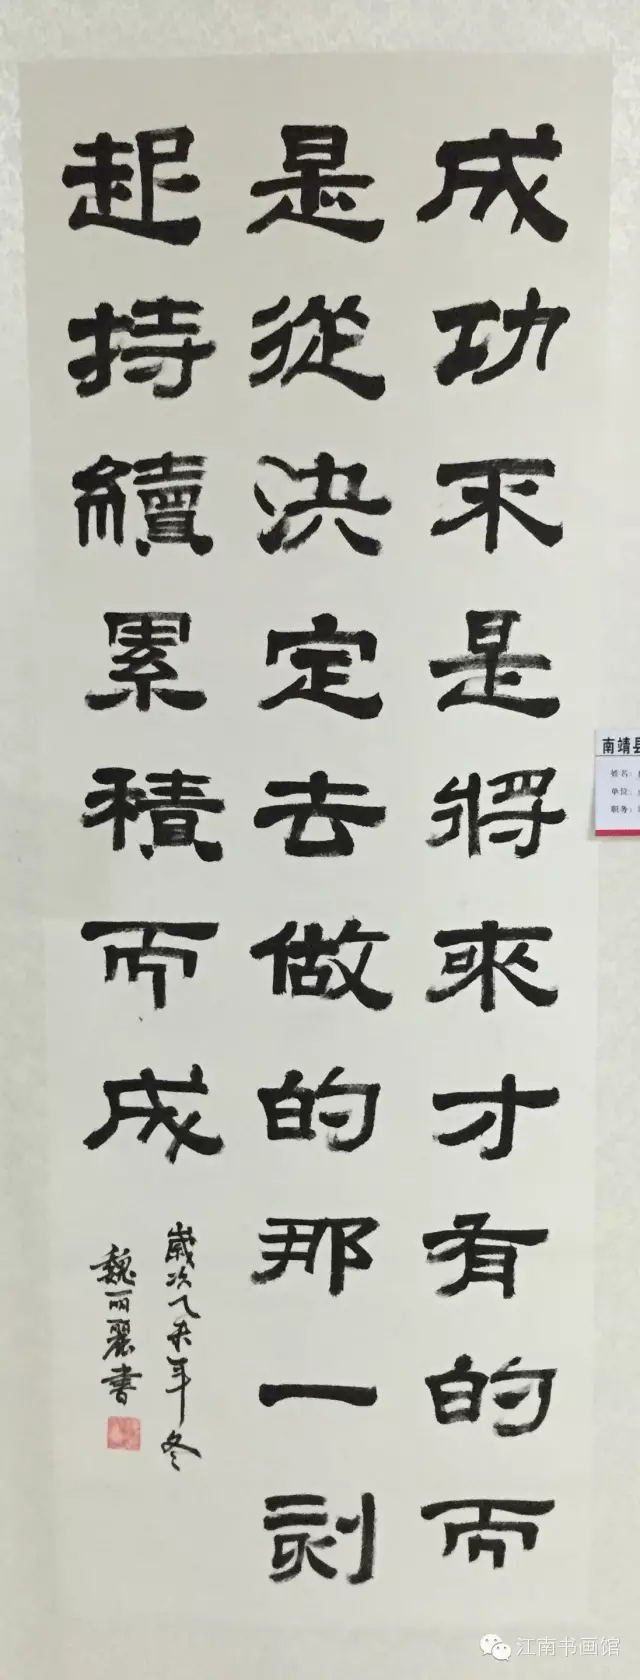 成功不是將來才有的而
是從決定去做的那一刻
起持續累積而成
歲次乙未年冬
魏丽麗書
南靖县
姓名：
单位：
职务：
江南书画馆